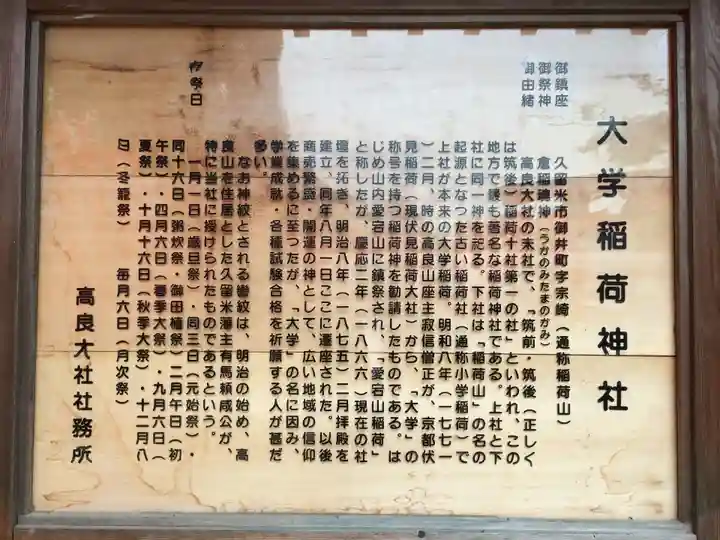 大学稲荷神社
御鎮座　久留米市御井町字宗崎（通称稲荷山）
御祭神　倉稲魂神（うがのみたまのかみ）
御由緒　高良大社の末社で、「筑前・筑後（正しく
は筑後）稲荷十社第一の社」といわれ、この
地方で最も著名な稲荷神社である。上社と下
社に同一神を祀る。下社は「稲荷山」の名の
起源となった古い稲荷社（通称小学稲荷）で
上社が本来の大学稲荷。明和八年（一七七一
）二月、時の高良山座主寂信僧正が、京都伏
見稲荷（現伏見稲荷大社）から、「大学」の
称号を持つ稲荷神を勧請したものである。は
じめ山内愛宕山に鎮祭され、「愛宕山稲荷」
と称したが、慶応二年（一八六六）現在の社
壇を拓き、明治八年（一八七五）二月拝殿を
建立、同年八月一日ここに遷座された。以後
商売繁盛・開運の神として、広い地域の信仰
を集めるに至ったが、「大学」の名に因み、
学業成就・各種試験合格を祈願する人が甚だ
多い。
なお神紋とされる轡紋は、明治の始め、高
良山を住居とした久留米藩主有馬頼咸公が、
特に当社に授けられたものであるという。
祭日　一月一日（歳旦祭）・同三日（元始祭）・
同十六日（粥炊祭・御田植祭）二月午日（初
午祭）・四月六日（春季大祭）・九月六日（
夏祭）・十月十六日（秋季大祭）・十二月八
日（冬籠祭）　毎月六日（月次祭）
高良大社社務所